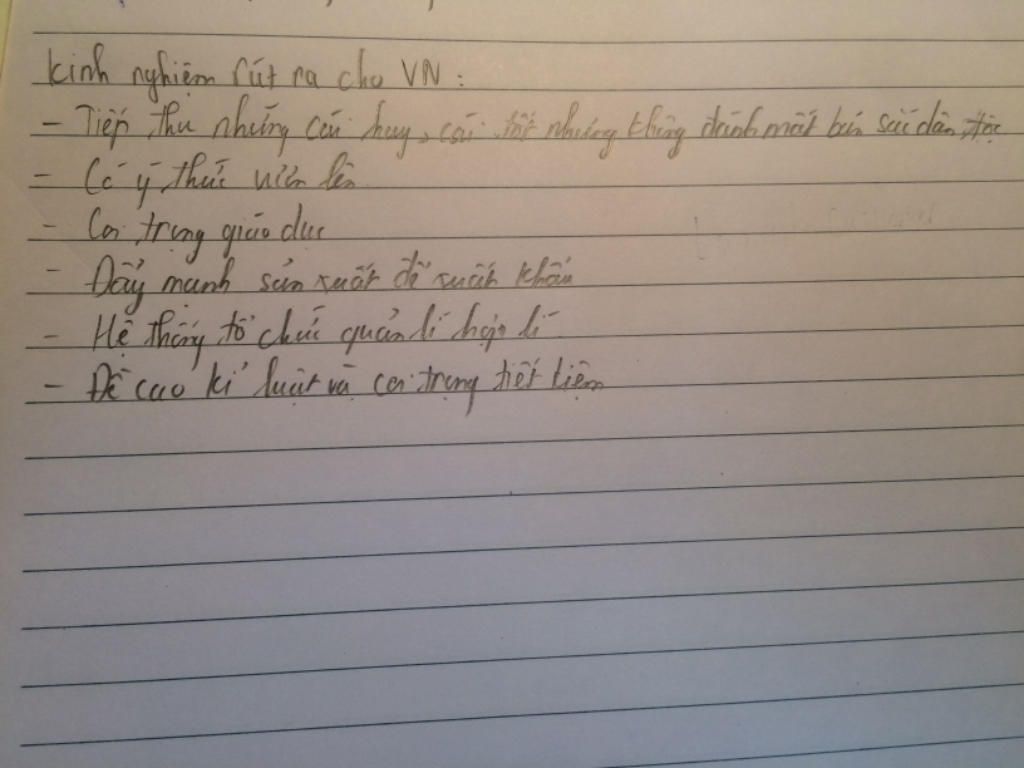 Kinh nghiệm rút ra cho VN:
- Tiếp thu những cái hay, cái tốt nhưng không đánh mất bản sắc dân tộc
- Có ý thức vươn lên
- Coi trọng giáo dục
- Đẩy mạnh sản xuất để xuất khẩu
- Hệ thống tổ chức quản lí hợp lí
- Đề cao kỉ luật và coi trọng tiết kiệm